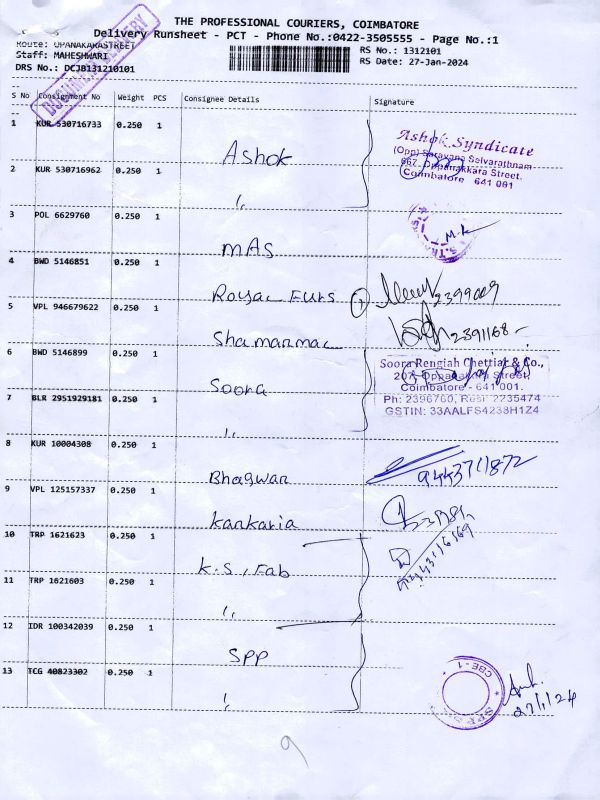 THE PROFESSIONAL COURIERS, COIMBATORE
Delivery Runsheet - PCT - Phone No.:0422-3505555 - Page No.:1
Route: OPANAKARASTREET
RS No.: 1312101
Staff: MAHESHWARI
RS Date: 27-Jan-2024
DRS No.: DCJB131210101
S No Consignment No Weight PCS Consignee Details Signature
1 KUR 530716733 0.250 1 Ashok
Ashok Syndicate
(Opp) Saravana Selvarathnam
667, Oppanakkara Street,
Coimbatore 641 001
2 KUR 530716962 0.250 1 "
3 POL 6629760 0.250 1 MAS
M.K
4 BWD 5146851 0.250 1 Royal Furs
2399009
5 VPL 946679622 0.250 1
2391168
6 BWD 5146899 0.250 1 Soora
Soora Rengiah Chettiar & Co.,
207, Oppanakara Street,
Coimbatore - 641 001.
Ph: 2396760, Resi: 2235474
GSTIN: 33AALFS4238H1Z4
7 BLR 2951929181 0.250 1 "
8 KUR 10004308 0.250 1 Bhagwan
9443711872
9 VPL 125157337 0.250 1 Kankaria
10 TRP 1621623 0.250 1 K.S. Fab
11 TRP 1621603 0.250 1 "
12 IDR 100342039 0.250 1 SPP
CBE - 1
13 TCG 40823302 0.250 1 "
27/1/24
9